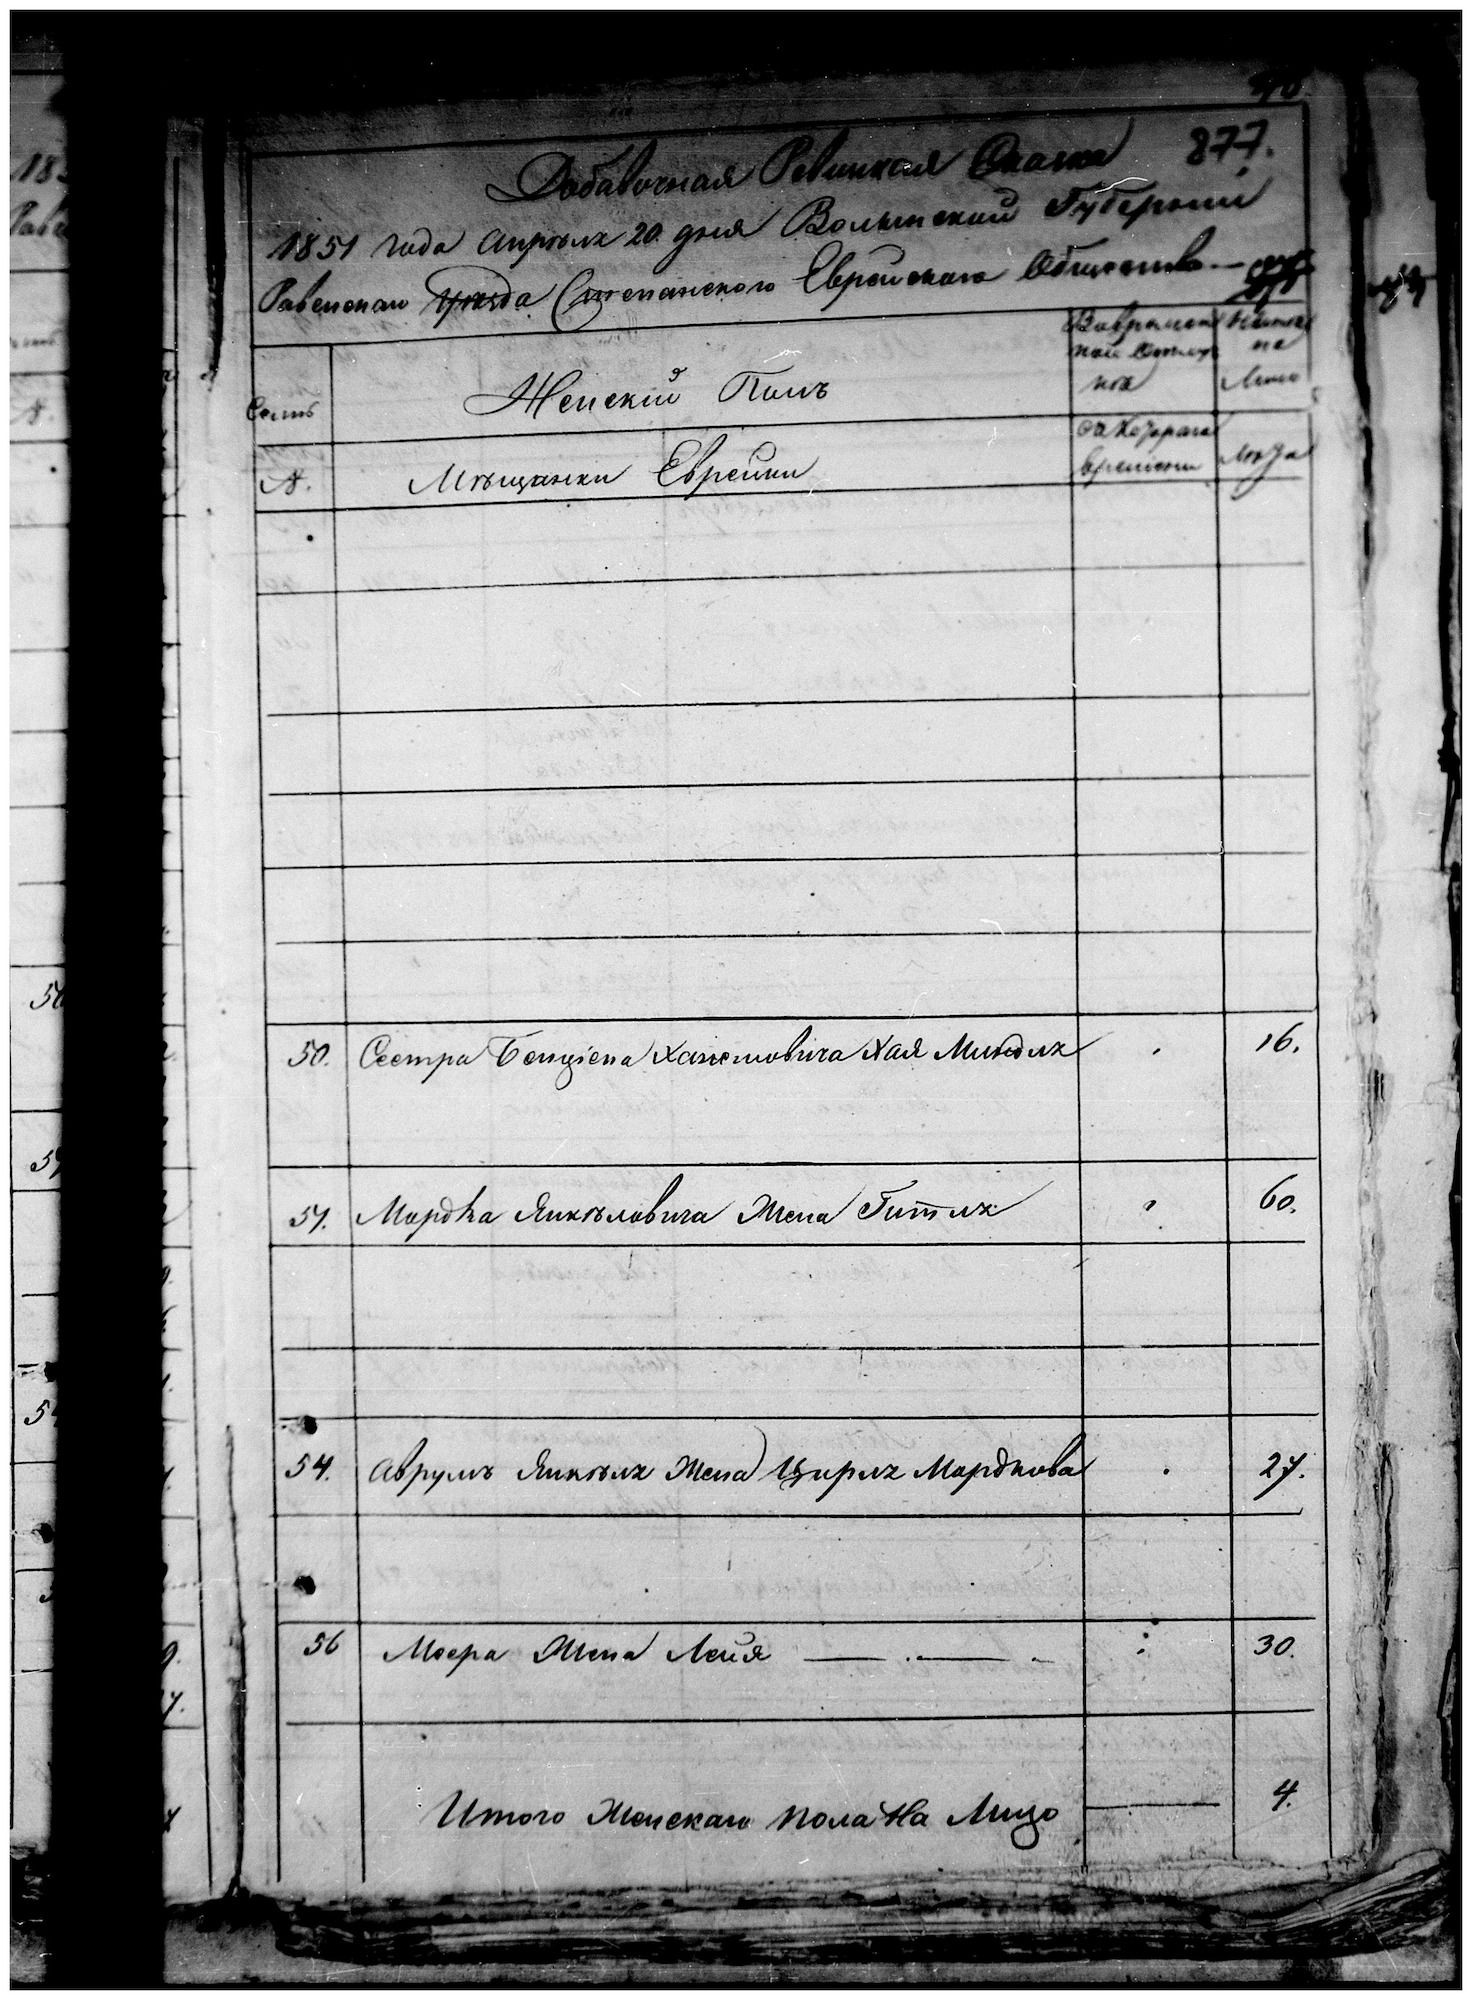 877.
Добавочная Ревизкая Сказка
1851 года Апрѣля 20 дня Волынской Губерніи
Ровенскаго Уѣзда Степанского Еврейскаго Общества
Семьъ
Женскій Полъ
Вовремен
ной Отлуч
ке
Ныне
на
Лицо
№.
Мѣщанки Еврейки
съ котораго
времени
Лѣта
50. Сестра Бенціена Хаимовича Хая Миндля 16.
51. Мордка Янкѣловича Жена Гитля 60.
54. Аврумъ Янкѣля Жена Цирля Мордкова 27.
56 Меера Жена Лейя 30.
Итого Женскаго пола На Лицо 4.
50
54